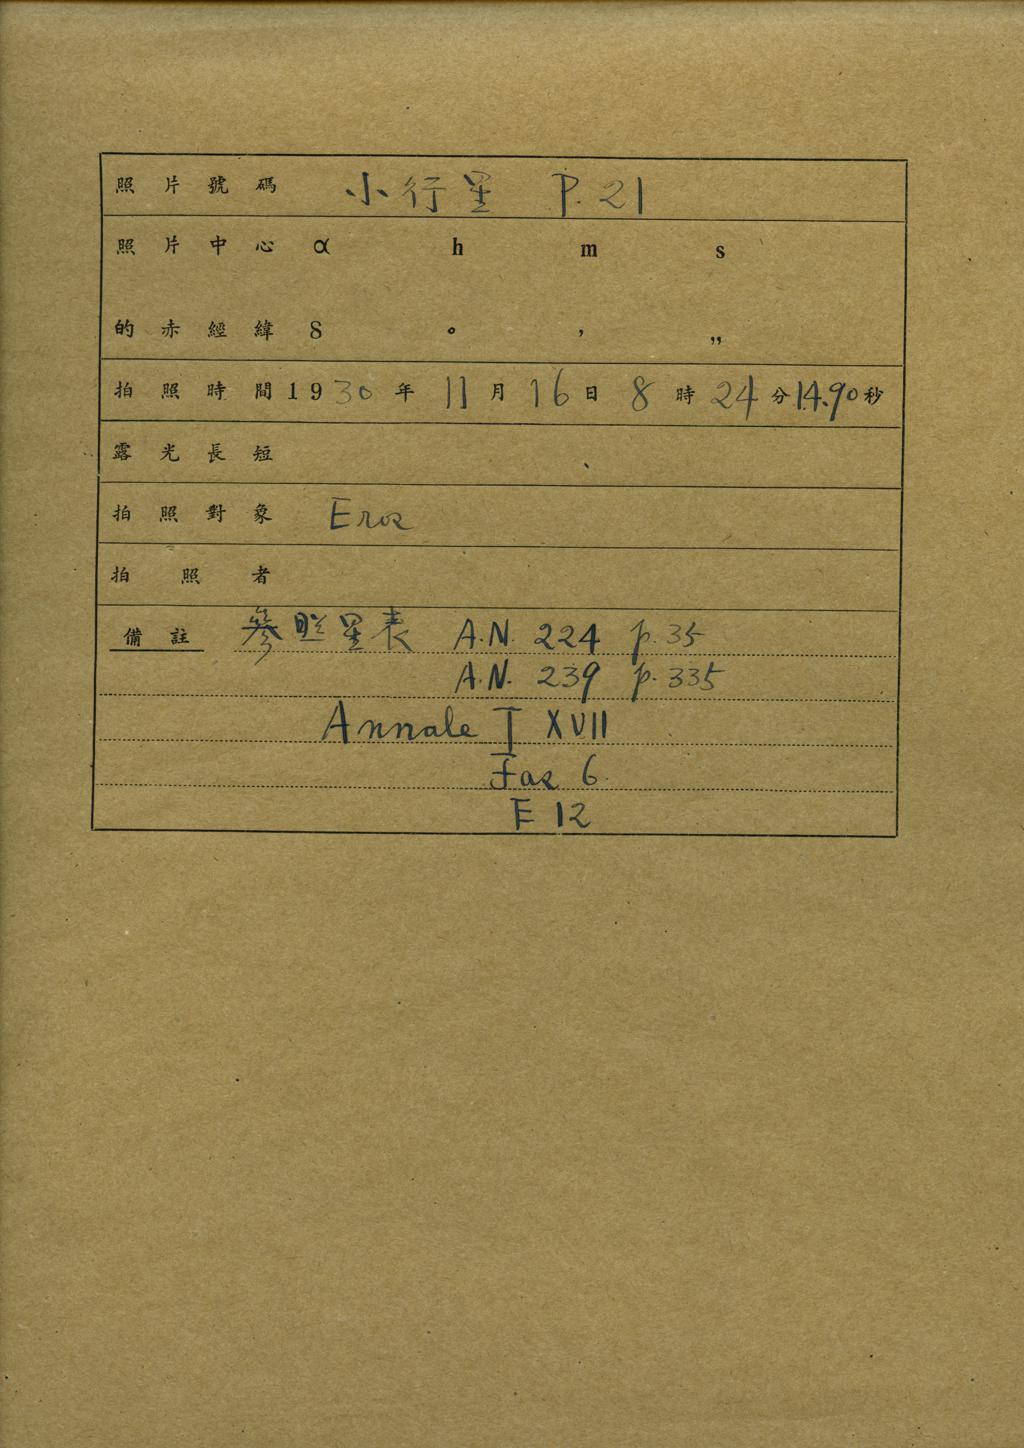 照片號碼 小行星 P. 21
照片中心 α h m s
的赤經緯 δ ° ′ ″
拍照時間 1930年 11月 16日 8時 24分 14.90秒
露光長短
拍照對象 Eros
拍照者
備註 參照星表 A.N. 224 p. 35
A.N. 239 p. 335
Annale T XVII
Fas 6
E 12